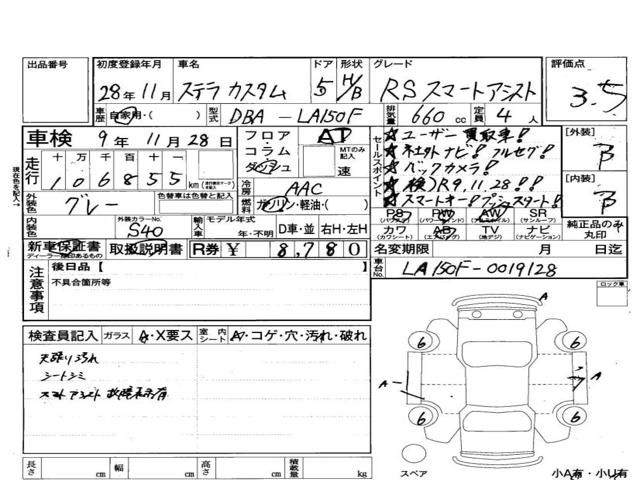 出品番号 初度登録年月 車名 ドア 形状 グレード 評価点
28年11月 ステラ カスタム 5 H/B RS スマートアシスト 3.5
車歴 自家用・( ) 型式 DBA-LA150F 排気量 660 cc 定員 4人
車検 9年11月28日 フロア・コラム・ダッシュ AT MTのみ記入 速
セールスポイント ★ユーザー買取車!
★社外ナビ!フルセグ!
★バックカメラ!
★検)R9,11,28!!
★スマートキー!プッシュスタート!
[外装] B
[内装] B
走行 十 万 千 百 十 一
106855 km
冷房 AAC
外装色 グレー 色替車は色替と記入 燃料 ガソリン・軽油・( )
内装色 外装カラーNo. S40 輸入車 モデル年式 年・不明 D車・並 右H・左H
PS (パワステ) PW (パワーウインド) AW (アルミホイル) SR (サンルーフ)
カワ (カワシート) AB (エアバッグ) TV (テレビ) ナビ (ナビゲーション)
純正品のみ丸印
新車保証書 ディーラー捺印あるもの 取扱説明書 R券 ¥ 8,780 名変期限 月 日迄
注意事項 後日品【 】
不具合箇所等
車台No. LA150F-0019128
ロック車
検査員記入 ガラス A・X要ス 室内シート A・コゲ・穴・汚れ・破れ
天張り汚れ
シートシミ
スマートアシスト 故障表示有
A
6 6
A A
6 6
スペア
長さ cm 幅 cm 高さ cm 積載量 kg
小A有・小U有
現在色を記入